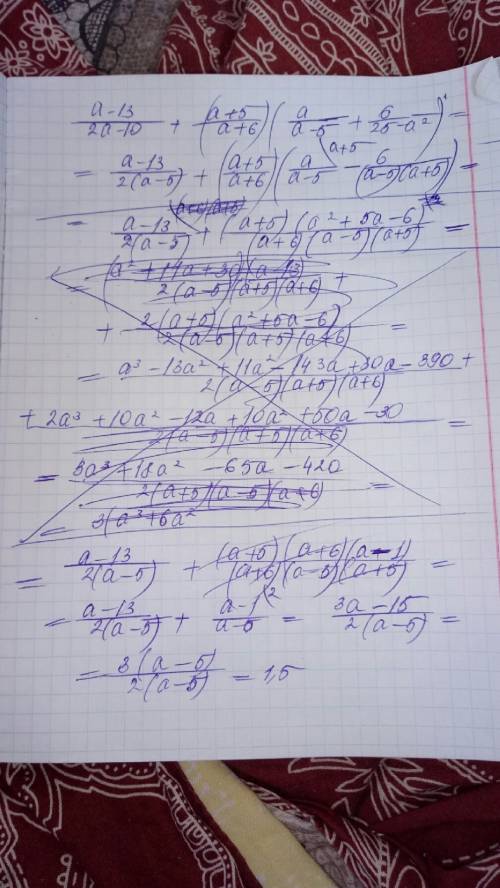 (a-13)/(2a-10) + ((a+5)/(a+6)) (a/(a-5) + 6/(25-a²)) =
= (a-13)/(2(a-5)) + ((a+5)/(a+6)) (a/(a-5) (a+5 - 6/((a-5)(a+5))) =
= (a-13)/(2(a-5)) + (a+5)(a²+5a-6)/((a+6)(a-5)(a+5)) =
= (a²+11a+30)(a-13)/(2(a-5)(a+5)(a+6)) +
+ 2(a+5)(a²+5a-6)/(2(a-5)(a+5)(a+6)) =
= (a³-13a²+11a²-143a+30a-390+)/(2(a-5)(a+5)(a+6))
+ (2a³+10a²-12a+10a²+50a-30)/(2(a-5)(a+5)(a+6)) =
= (3a³+18a²-65a-420)/(2(a+5)(a-5)(a+6)) =
= 3(a³+6a²
= (a-13)/(2(a-5)) + (a+5)(a+6)(a-1)/((a+6)(a-5)(a+5)) =
= (a-13)/(2(a-5)) + (a-1)/(a-5) (2 = (3a-15)/(2(a-5)) =
= 3(a-5)/(2(a-5)) = 1,5